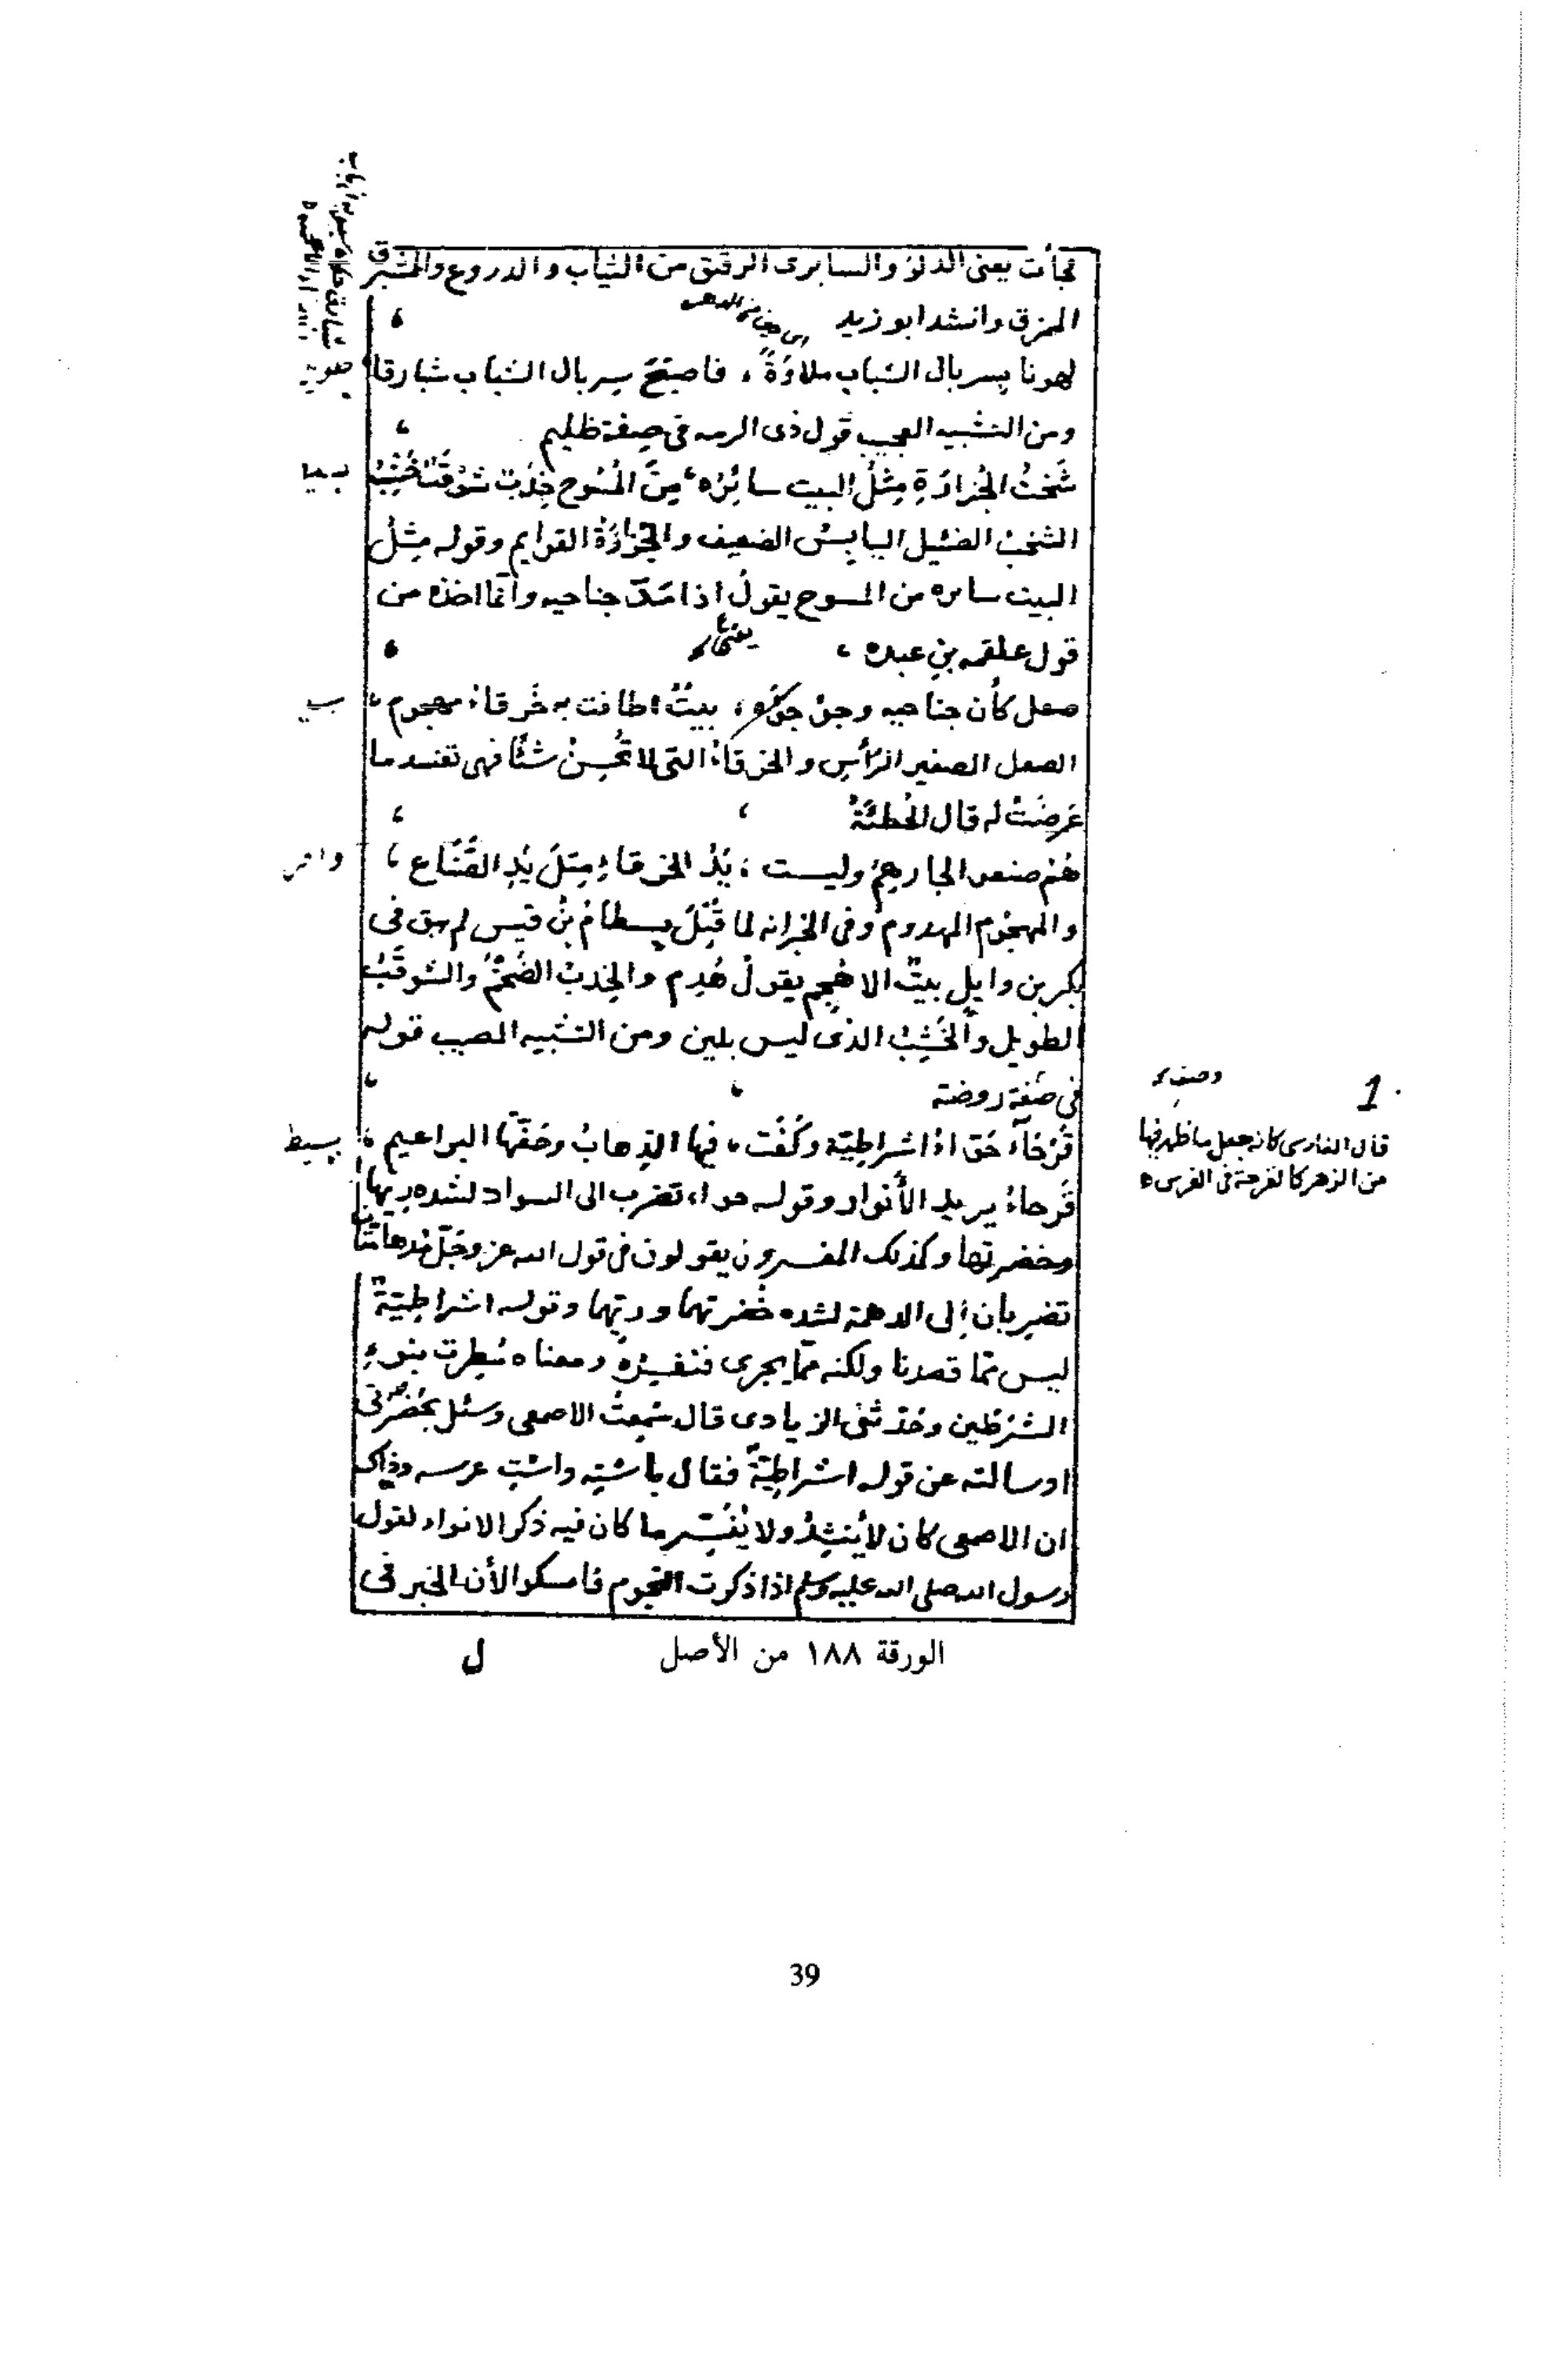 فجأت يعنى الدلو والسابرى الرقيق من الثياب والدروع والمشبرق
الممزق وانشد ابو زيد
لهونا بسربال الشباب ملاوَةً ، فاصبح سربال الشباب شبارقا
طويل
ومن التشبيه العجيب قول ذى الرمه فى صِفة ظليم
شَخْتُ الجُزارَةِ مِثْلُ البيت سائرُه ، مِنَ المُسُوح خِدَبٌّ شَوْقَبٌ خَشِبُ
الشخت الضئيل اليابس الضعيف والجُزارَةُ القوايم وقوله مِثْلُ
البيت سايره من المسوح يقول اذا مَدّ جناحيه وانّما اخذه من
قول علقمه بنِ عبده ،
صعل كأن جناحيه وجؤجؤه ، بيتٌ اطافت به خَرقاءُ مهجوم ،
الصعل الصغير الرّأسِ والخرقاءُ التى لا تُحسِنُ شئًا فهى تفسد ما
عَرضَتْ له قال الحُطئَةُ
هُمُ صنعوا لجارهِمُ وليست ، يَدُ الخرقاءِ مِثلَ يَدِ الصَّنَاع ،
وافر
والمهجُوم المهدوم وفى الخبرانه لما قُتِلَ بِسطامُ بْنُ قيس لم يبق فى
بكر بن وايلٍ بيتٌ الا هُجِم يقول هُدِم والخِدبّ الضّخْمُ والشوقَبُ
الطويل والخَشِبُ الذى ليس بلين ومن التشبيه المصيب قوله
فى صِفَة روضة
قَرْحَآءُ حَوّاءُ اشراطِيّة وكَفَت ، فيها الذِهابُ وحَفّتْها البراعيم ،
بسيط
1
وصف
قال الفارسى كانه جعل ما ظهر فيها
من الزهر كالقرحة فى الفرس ه
قَرحاءُ يريد الأنوار وقوله حواء تضرب الى السواد لشده ريها
وخضرتها وكذلك المفسرون يقولون فى قول الله عز وجَلّ مُدهامّتان
تضربان إلى الدهمة لشده خُضرتهما وريّهما وقوله اشراطِيّةٌ
ليس ممّا قصدنا ولكنه ممّا يجرى فنفسِّرهُ ومعناه مُطِرت بنوءِ
الشَرَطَين وحَدّثنى الزيادى قال سَمِعتُ الاصمعى وسُئل بحضرتى
او سالته عن قوله اشراطِيّةٌ فقال باستِه واستِ عرسه وذاك
ان الاصمعى كان لا يُنشِدُ ولا يُفسّر ما كان فيه ذكر الانواء لقول
رسول الله صلى الله عليه وسلم اذا ذكرت النجوم فامسكوا لأن الخبر فى
الورقة ١٨٨ من الأصل
ل
39